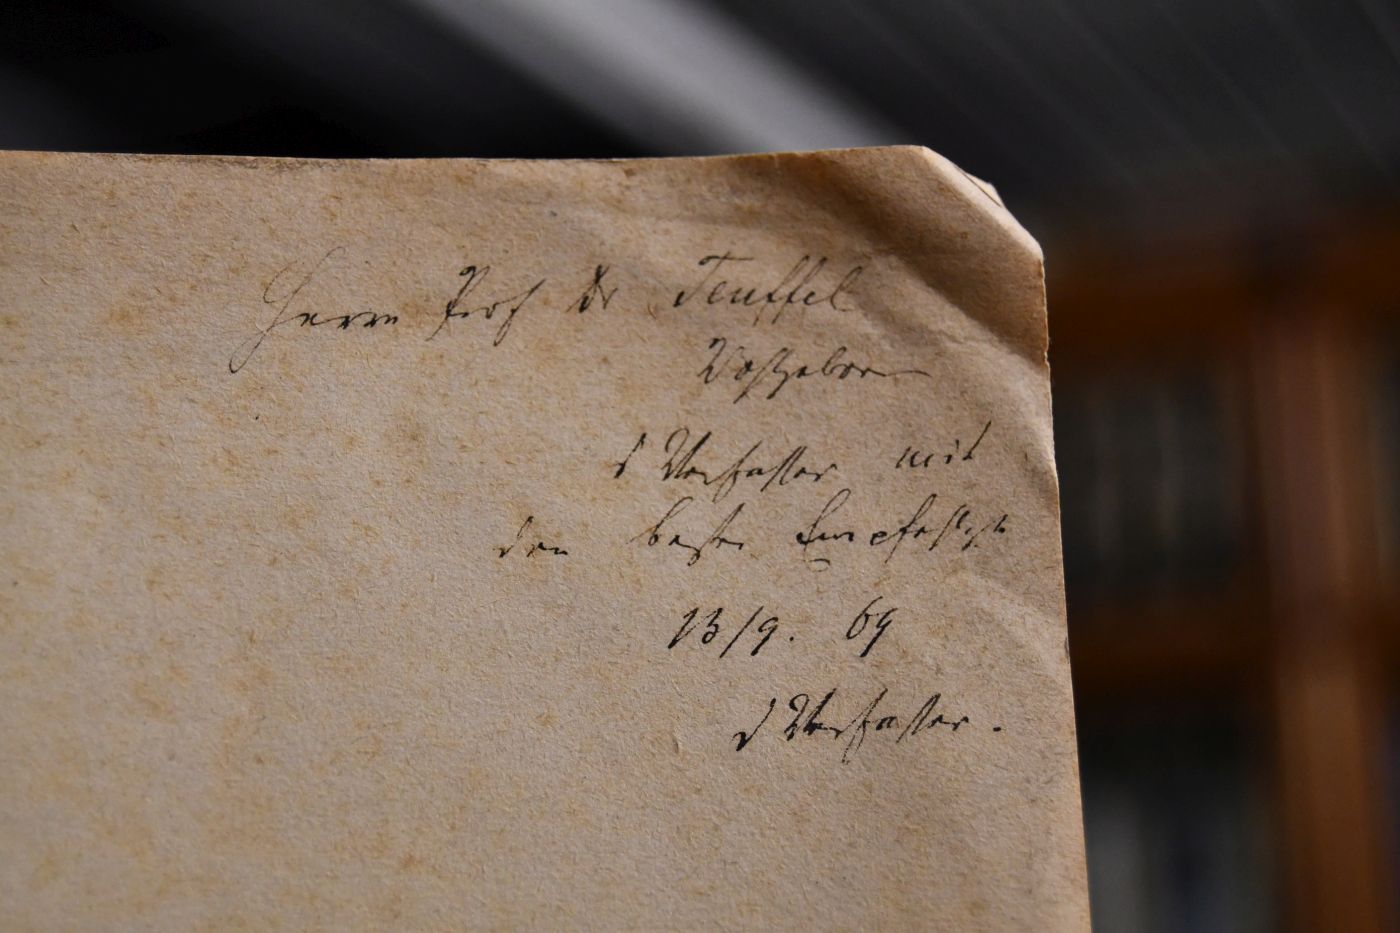 Herrn Prof Dr Teuffel
Wohlgeboren
d Verfasser mit
den besten Empfehlgn
13/9. 69
d Verfasser.